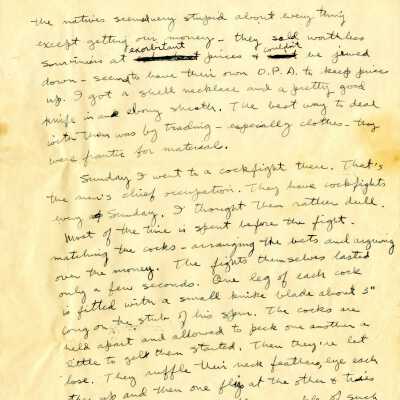 the natives seemed very stupid about every thing
except getting our money - they sold worthless
souvineers at exorbitant prices & couldn't be jewed
down - seem to have their own O.P.A. to keep prices
up. I got a shell necklace and a pretty good
knife in an ebony sheath. The best way to deal
with them was by trading - especially clothes - they
were frantic for material.
Sunday I went to a cockfight there. That's
the men's chief occupation. They have cockfights
every Sunday. I thought them rather dull.
Most of the time is spent before the fight -
matching the cocks - arranging the bets and arguing
over the money. The fights themselves lasted
only a few seconds. One leg of each cock
is fitted with a small knife blade about 3"
long on the stub of his spur. The cocks are
held apart and allowed to peck one another a
little to get them started. Then they're let
lose. They ruffle their neck feathers, eye each
other up and then one flies at the other & tries
of such